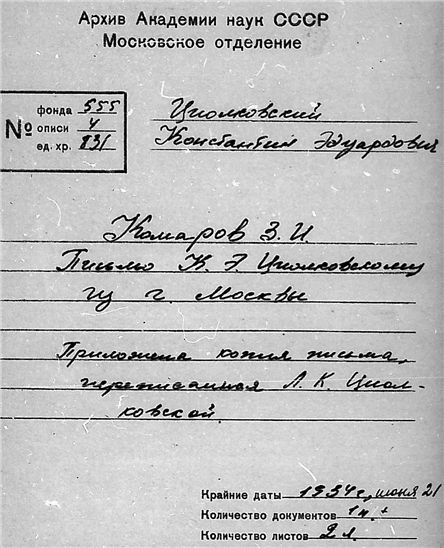 Архив Академии наук СССР
Московское отделение
№
фонда 555
описи 4
ед. хр. 831
Циолковский
Константин Эдуардович
Комаров З. И.
Письмо К. Э. Циолковскому
из г. Москвы
Приложена копия письма,
переписанная Л. К. Циол-
ковской
Крайние даты 1934 г., июня 21
Количество документов 1 п. +
Количество листов 2 л.